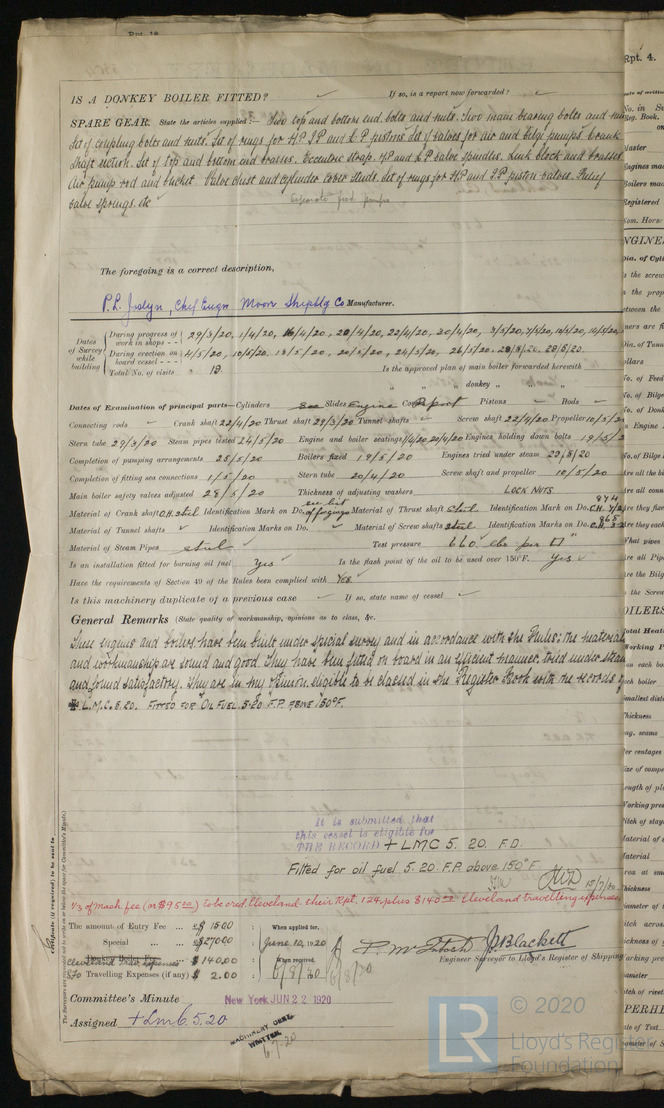 IS A DONKEY BOILER FITTED? ✓ If so, is a report now forwarded? ✓
SPARE GEAR. State the articles supplied:— Two top and bottom end bolts and nuts. Two main bearing bolts and nuts
Set of coupling bolts and nuts. Set of rings for H.P. I.P and L.P pistons. Set of valves for air and bilge pumps. Crank
shaft section. Set of top and bottom end brasses. Eccentric strap. H.P and L.P valve spindles. Link block and brasses
Air pump rod and bucket. Valve chest and cylinder cover studs. Set of rings for H.P and I.P piston valves. Relief
valve springs. etc ✓ Separate feed pumps.
The foregoing is a correct description,
Chief Engr Moon Shipbldg Co Manufacturer.
Dates of Survey while building
During progress of work in shops - - 29/3/20, 1/4/20, 20/4/20, 22/4/20,
During erection on board vessel - - - 4/5/20, 10/5/20, 13/5/20, 20/5/20, 24/5/20, 26/5/20, 28/5/20.
Total No. of visits 19. Is the approved plan of main boiler forwarded herewith
" " " donkey " "
Dates of Examination of principal parts—Cylinders See Slides Engine Covers Report Pistons ✓ Rods ✓
Connecting rods ✓ Crank shaft 22/4/20 Thrust shaft 29/3/20 Tunnel shafts ✓ Screw shaft 22/4/20 Propeller 10/5/2
Stern tube 29/3/20 Steam pipes tested 24/5/20 Engine and boiler seatings 20/4/20 Engines holding down bolts 19/5/2
Completion of pumping arrangements 25/5/20 Boilers fixed 19/5/20 Engines tried under steam 29/5/20
Completion of fitting sea connections 1/5/20 Stern tube 20/4/20 Screw shaft and propeller 10/5/20
Main boiler safety valves adjusted 28/5/20 Thickness of adjusting washers LOCK NUTS
Material of Crank shaft O.H. steel Identification Mark on Do. see list of forgings Material of Thrust shaft steel Identification Mark on Do.
Material of Tunnel shafts ✓ Identification Marks on Do. ✓ Material of Screw shafts steel Identification Marks on Do.
Material of Steam Pipes steel Test pressure 660 lbs per □"
Is an installation fitted for burning oil fuel Yes Is the flash point of the oil to be used over 150°F. Yes
Have the requirements of Section 49 of the Rules been complied with Yes
Is this machinery duplicate of a previous case ✓ If so, state name of vessel ✓
General Remarks (State quality of workmanship, opinions as to class, &c.
These engines and boilers have been built under special survey and in accordance with the Rules: the material
and workmanship are sound and good. They have been fitted on board in an efficient manner, tried under steam
and found satisfactory. They are in my opinion eligible to be classed in the Register Book with the records of
L.M.C. 5.20. FITTED FOR OIL FUEL 5.20 F.P. ABOVE 150°F.
It is submitted that
this vessel is eligible for
THE RECORD + LMC 5. 20. F.D.
Fitted for oil fuel 5.20. F.P. above 150°F.
15/7/20
1/3 of Mach. fee (or $95.00) to be cred. Cleveland their Rpt. 124, plus $140.00 Cleveland travelling expenses
The amount of Entry Fee ... $ 15.00 When applied for,
Special ... $ 270.00 June 10, 1920
Cleveland expenses $ 140.00 When received,
Do Travelling Expenses (if any) $ 2.00 6/8/20 6/8/20
J. Blackett
Engineer Surveyor to Lloyd's Register of Shipping
Committee's Minute New York JUN 22 1920
Assigned + LMC 5.20
MACHINERY CERT.
WRITTEN
6.7.20
Certificate (if required) to be sent to
The Surveyors are requested not to write on or below the space for Committee's Minute.
© 2020
LR
Lloyd's Register
Foundation
Rpt. 4.